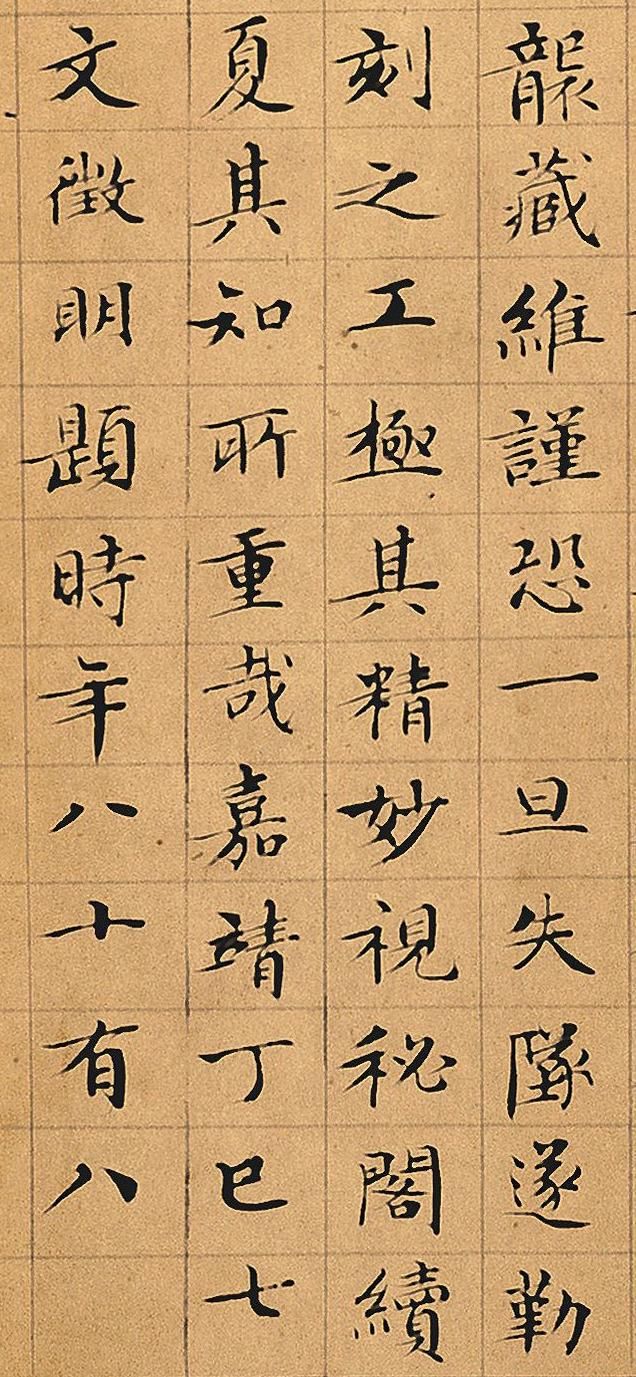 襲藏維謹恐一旦失墜遂勒
刻之工極其精妙視秘閣續
夏其知所重哉嘉靖丁巳七
文徵明題時年八十有八